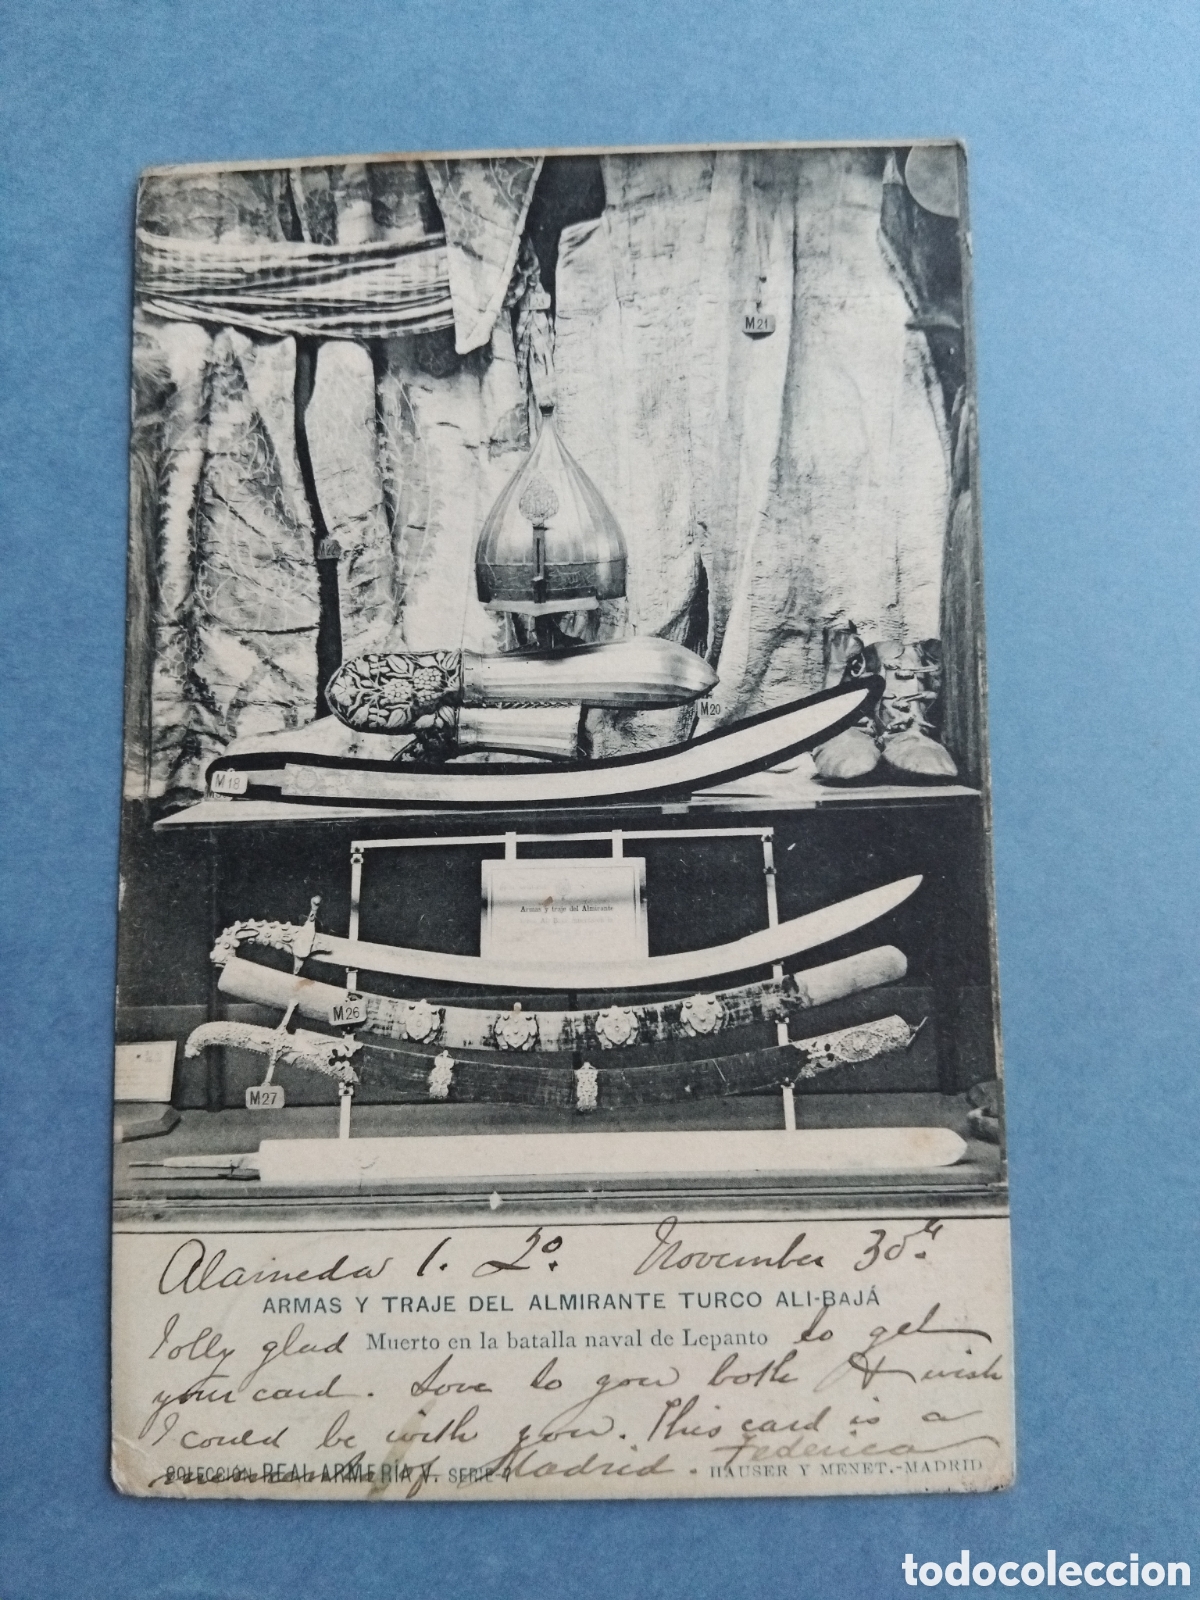 M21
M22
M20
M18
Armas y traje del Almirante
M26
M27
Alameda 1. 2º. November 30th.
ARMAS Y TRAJE DEL ALMIRANTE TURCO ALI-BAJÁ
Jolly glad Muerto en la batalla naval de Lepanto to get
your card. Love to you both & wish
I could be with you. This card is a
Madrid. Federica
COLECCIÓN REAL ARMERÍA V. SERIE HAUSER Y MENET.-MADRID
todocoleccion